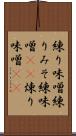 練り味噌練
りみそ練味
噌煉り
味噌